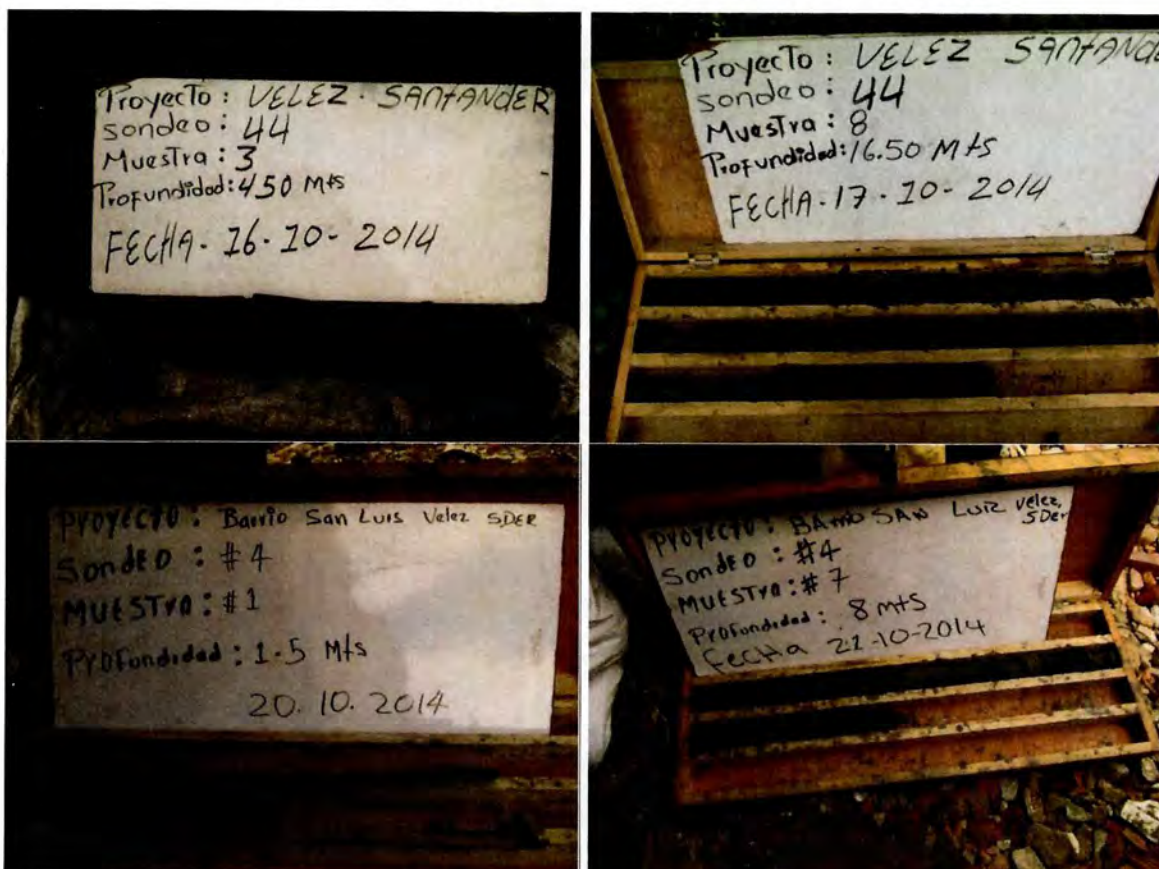 Proyecto: VELEZ. SANTANDER
sondeo: 44
Muestra: 3
Profundidad: 4.50 Mts
FECHA. 16.10- 2014
Proyecto: VELEZ SANTANDE
sondeo: 44
Muestra: 8
Profundidad: 16.50 Mts
FECHA. 17.10- 2014
Proyecto: Barrio San Luis Velez SDER
Sondeo: #4
Muestra: #1
Profundidad: 1.5 Mts
20.10.2014
Proyecto: BARRIO SAN LUIZ Velez,
SDer
Sondeo: #4
MUESTra: #7
Profundidad: 8 mts
FECHa 21-10-2014